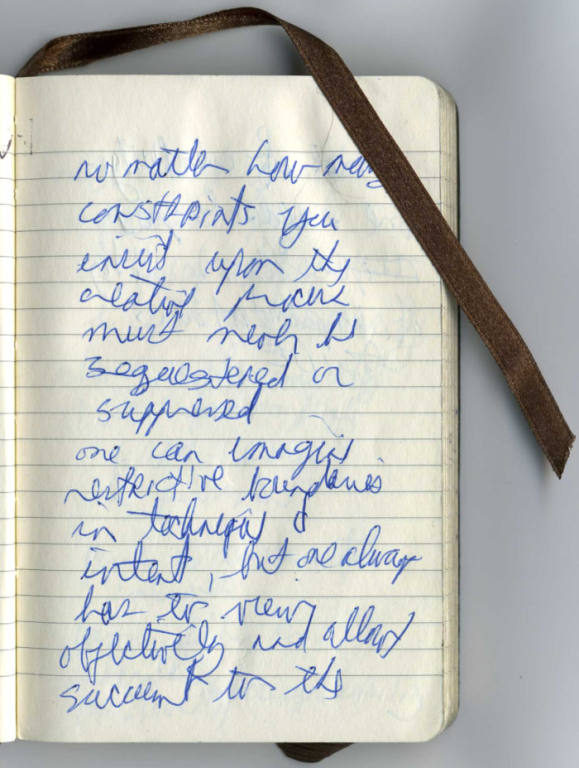 no matter how many
constraints you
insist upon the
creative process
must never be
sequestered or
suppressed
one can imagine
restrictive boundaries
in technique &
intent, but one always
has to view
objectively and
to the